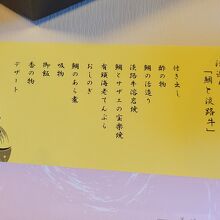 「鯛と淡路牛」
付き出し
酢の物
鯛の活造り
淡路牛溶岩焼
鯛とサザエの宝楽焼
有頭海老天ぷら
おしのぎ
鯛のあら煮
吸物
御飯
香の物
デザート